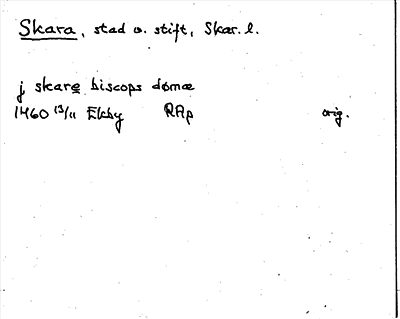 Skara, stad o. stift, Skar. l.
j skare biscops dømæ
1460 13/11 Ekby RAp orig.